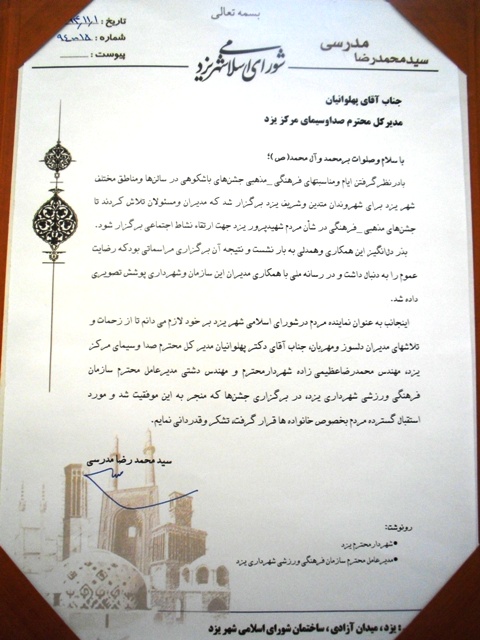 بسمه تعالی
تاریخ :
شماره :
پیوست :
شورای اسلامی شهر یزد
مدرسی
سیدمحمدرضا
جناب آقای پهلوانیان
مدیرکل محترم صداوسیمای مرکز یزد
با سلام و صلوات بر محمد و آل محمد(ص)؛
بادرنظرگرفتن ایام ومناسبتهای فرهنگی _مذهبی جشن‌های باشکوهی در سالن‌ها ومناطق مختلف
شهر یزد برای شهروندان متدین وشریف یزد برگزار شد که مدیران ومسئولان تلاش کردند تا
جشن‌های مذهبی _فرهنگی در شأن مردم شهیدپرور یزد جهت ارتقاء نشاط اجتماعی برگزار شود.
بذر دل‌انگیز این همکاری وهمدلی به بار نشست و نتیجه آن برگزاری مراسماتی بودکه رضایت
عموم را به دنبال داشت و در رسانه ملی با همکاری مدیران این سازمان وشهرداری پوشش تصویری
داده شد.
اینجانب به عنوان نماینده مردم درشورای اسلامی شهر یزد بر خود لازم می دانم تا از زحمات و
تلاشهای مدیران دلسوز ومهربان، جناب آقای دکتر پهلوانیان مدیر کل محترم صدا وسیمای مرکز
یزد، مهندس محمدرضاعظیمی زاده شهردارمحترم و مهندس دشتی مدیرعامل محترم سازمان
فرهنگی ورزشی شهرداری یزد، در برگزاری جشن‌ها که منجر به این موفقیت شد و مورد
استقبال گسترده مردم بخصوص خانواده ها قرار گرفت، تشکر وقدردانی نمایم.
سید محمد رضا مدرسی
رونوشت:
●شهردارمحترم یزد
●مدیرعامل محترم سازمان فرهنگی ورزشی شهرداری یزد
: یزد ، میدان آزادی ، ساختمان شورای اسلامی شهر یزد